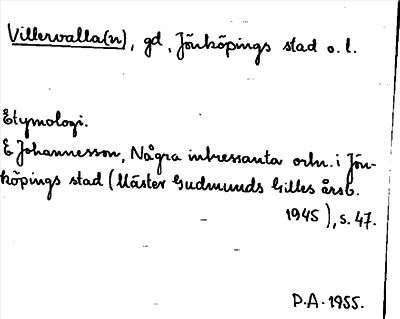 Villervalla(n), gd, Jönköpings stad o. l.
Etymologi.
E Johannesson, Några intressanta ortn. i Jön-
köpings stad (Mäster Gudmunds Gilles årsb.
1945), s. 47.
P.A. 1955.